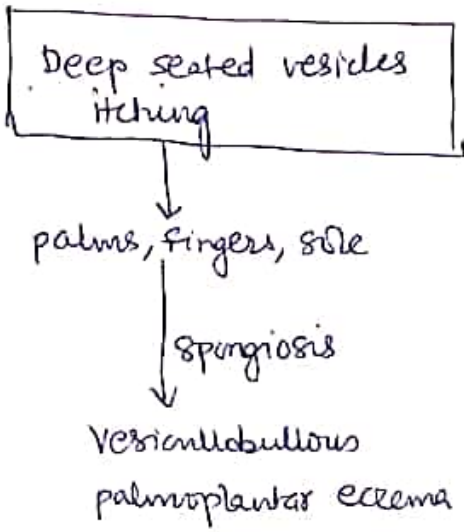 Deep seated vesicles
itching
palms, fingers, sole
spongiosis
Vesicullobullous
palmoplantar eczema